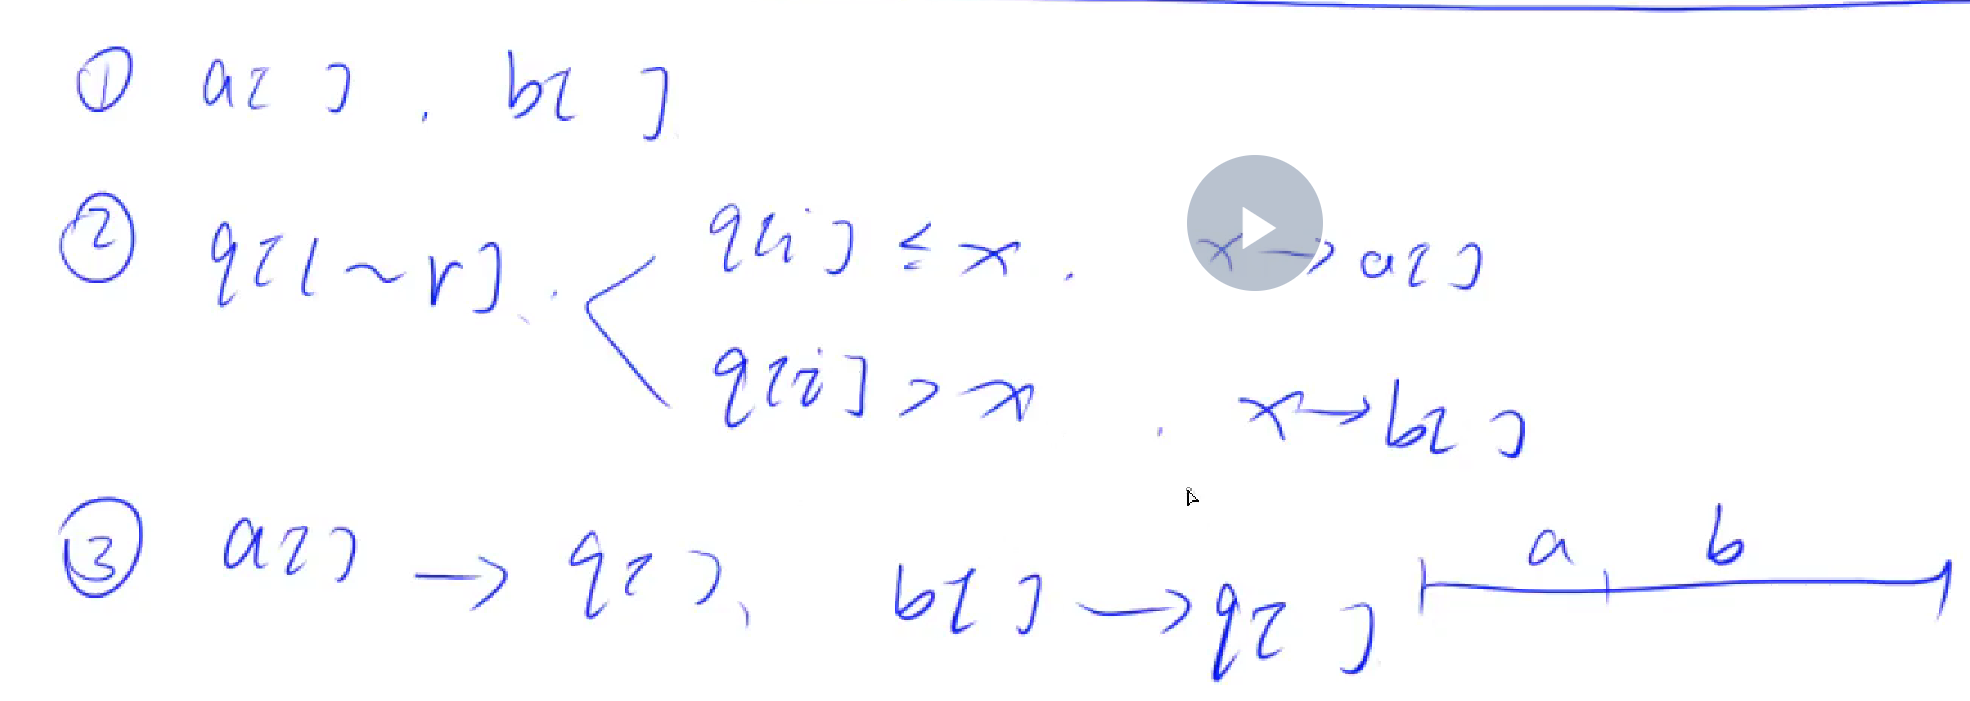 ① a[ ] , b[ ]
② q[l~r]. q[i] ≤ x . x→a[ ]
q[i] > x . x→b[ ]
③ a[ ] → q[ ]、 b[ ] → q[ ] a b